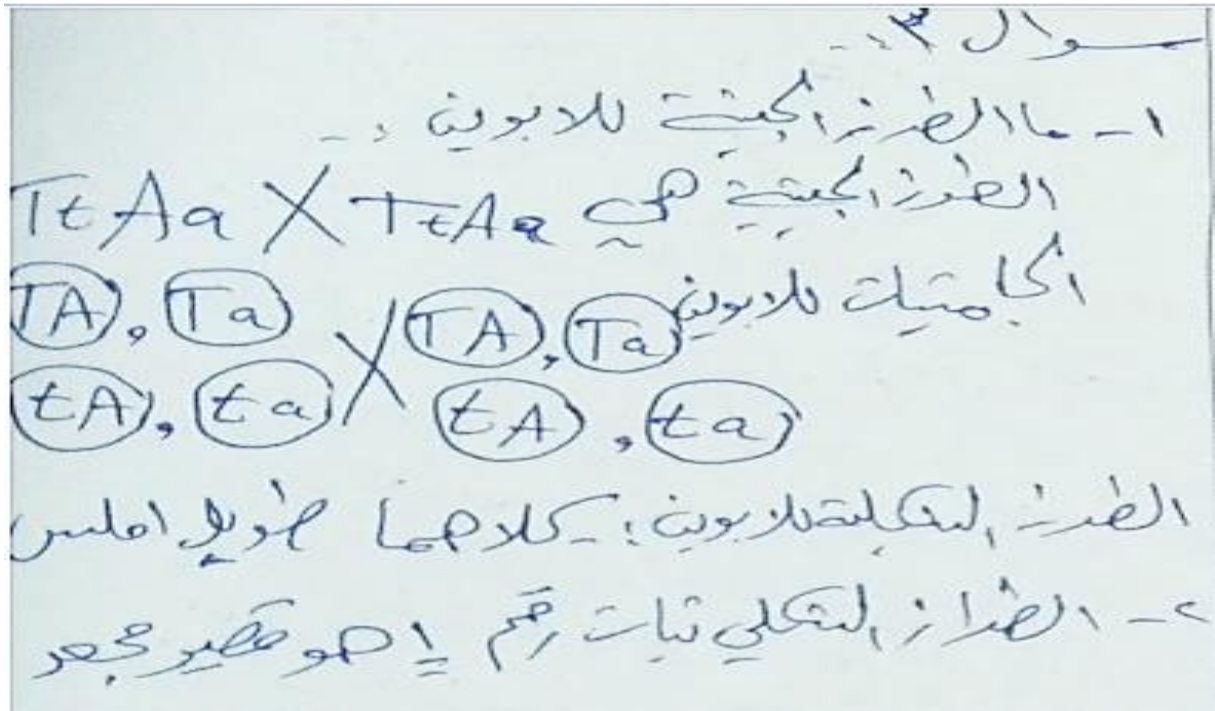 سؤال ٣:-
١- ما الطرز الجينية للأبوين :-
الطرز الجينية هي TtAa X TtAa
الجاميتات للأبوين TA, Ta X TA, Ta
tA, ta tA, ta
الطرز الشكلية للأبوين :- كلاهما طويل املس
٢- الطراز الشكلي نبات رقم 1 هو قصير مجعد